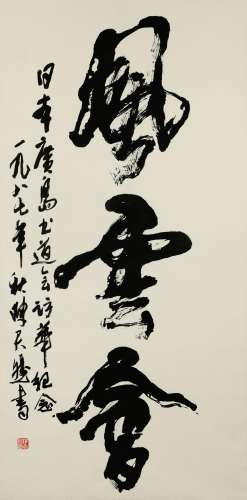 風雲會
日本廣島書道會訪華紀念
一九八七年秋陳天然書